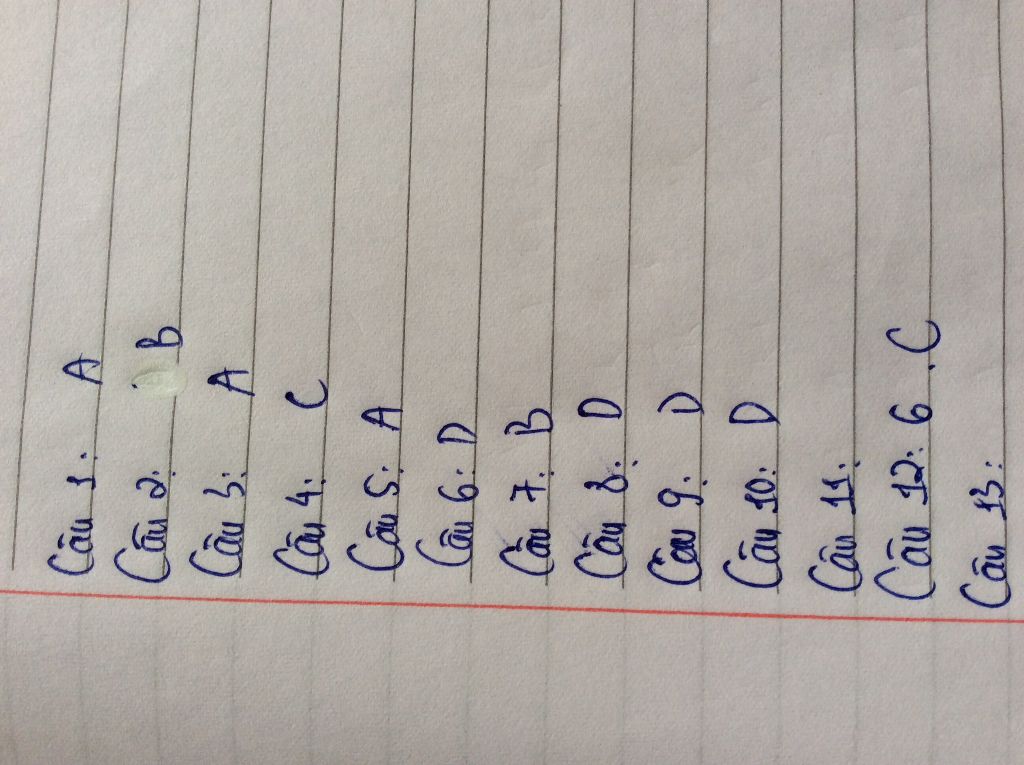 Câu 1: A
Câu 2: B
Câu 3: A
Câu 4: C
Câu 5: A
Câu 6: D
Câu 7: B
Câu 8: D
Câu 9: D
Câu 10: D
Câu 11:
Câu 12: 6. C
Câu 13: